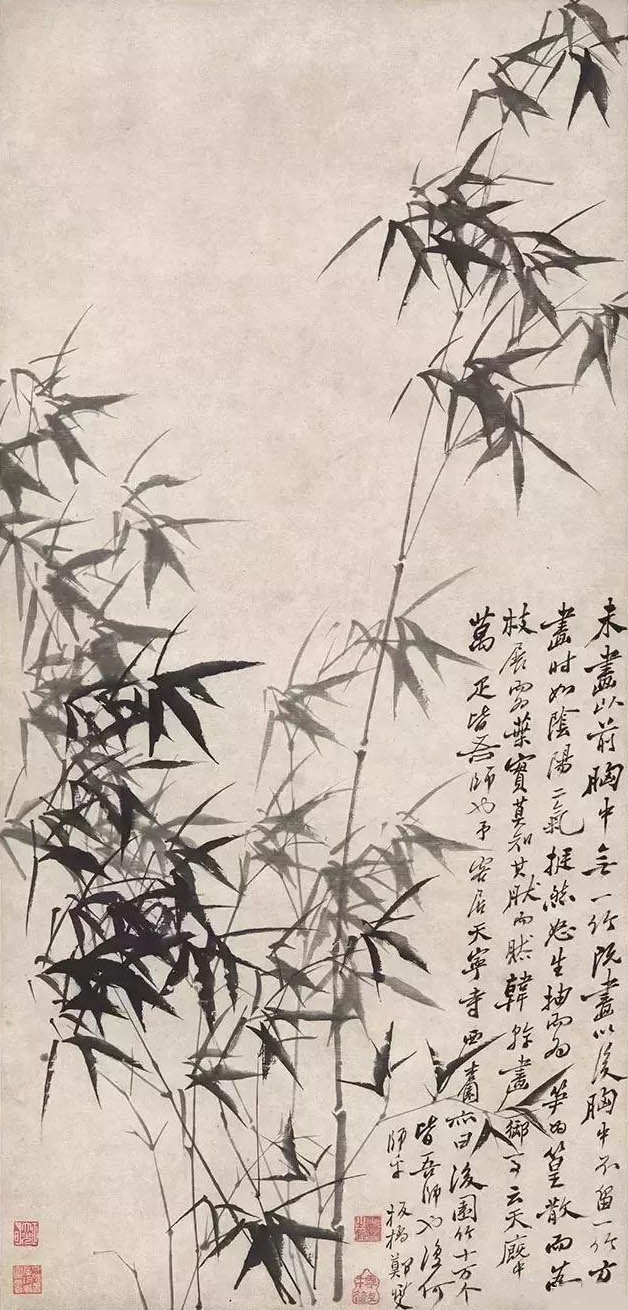 未畫以前胸中無一竹既畫以後胸中不留一竹方
畫時如陰陽二氣挺然怒生抽而為笋為篁散而為
枝展而為葉實莫知其然而然韓幹畫御馬云天廄中
萬疋皆吾師也予客居天寧寺西杏園亦曰後園竹十萬个
皆吾師也復何
師乎板橋鄭燮